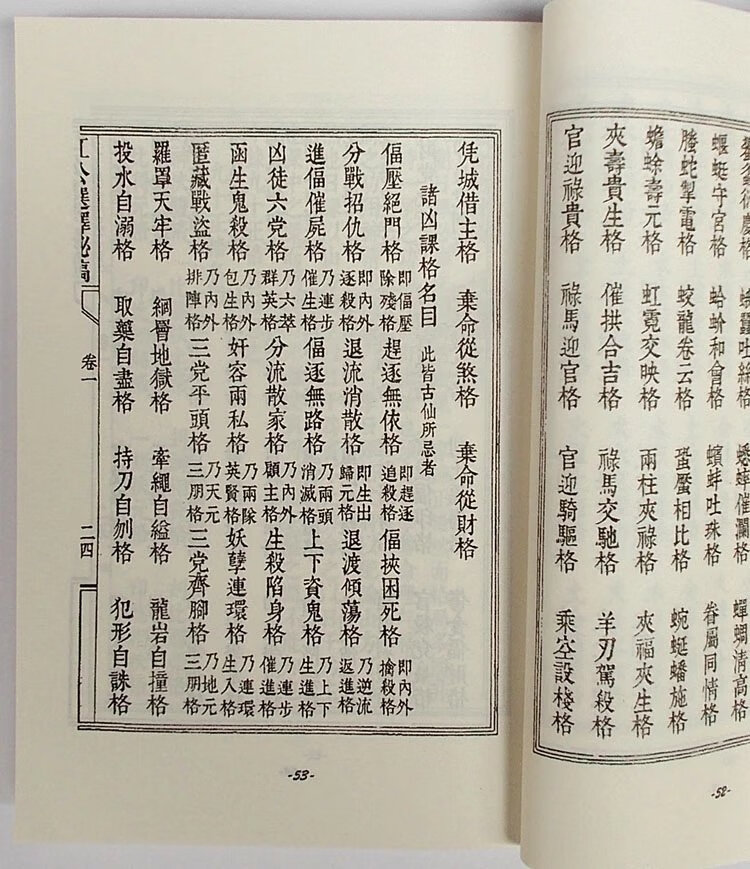 吐絲格 蟬蜩清高格
蝘蜓守宮格 蛤蚧和會格 蠙蚌吐珠格 眷屬同情格
螣蛇掣電格 蛟龍卷云格 蛩蟨相比格 蜿蜒蟠施格
蟾蜍壽元格 虹霓交映格 兩柱夾祿格 夾福夾生格
夾壽貴生格 催拱合吉格 祿馬交馳格 羊刃駕殺格
官迎祿貴格 祿馬迎官格 官迎騎驅格 乘空設棧格
-52-
凭城借主格 棄命從煞格 棄命從財格
諸凶課格名目 此皆古仙所忌者
偪壓絕門格 即偪壓除殘格 趕逐無依格 即趕逐追殺格 偪挾困死格 即內外擒殺格
分戰招仇格 即內外逐殺格 退流消散格 即生出歸元格 退渡傾蕩格 乃逆流返進格
進偪催屍格 乃連步催生格 偪逐無路格 乃兩頭消滅格 上下資鬼格 乃上下生進格
凶徒六党格 乃六萃群英格 分流散家格 乃內外顧主格 生殺陷身格 乃連步催進格
函生鬼殺格 乃內外包生格 奸容兩私格 乃兩隊英賢格 妖孽連環格 乃連環生入格
匿藏戰盜格 乃內外排陣格 三党平頭格 乃天元三朋格 三党齊腳格 乃地元三朋格
羅罩天牢格 綱罾地獄格 牽繩自縊格 龍岩自撞格
投水自溺格 取藥自盡格 持刀自刎格 犯形自誅格
公選擇秘稿 卷一 二四
-53-